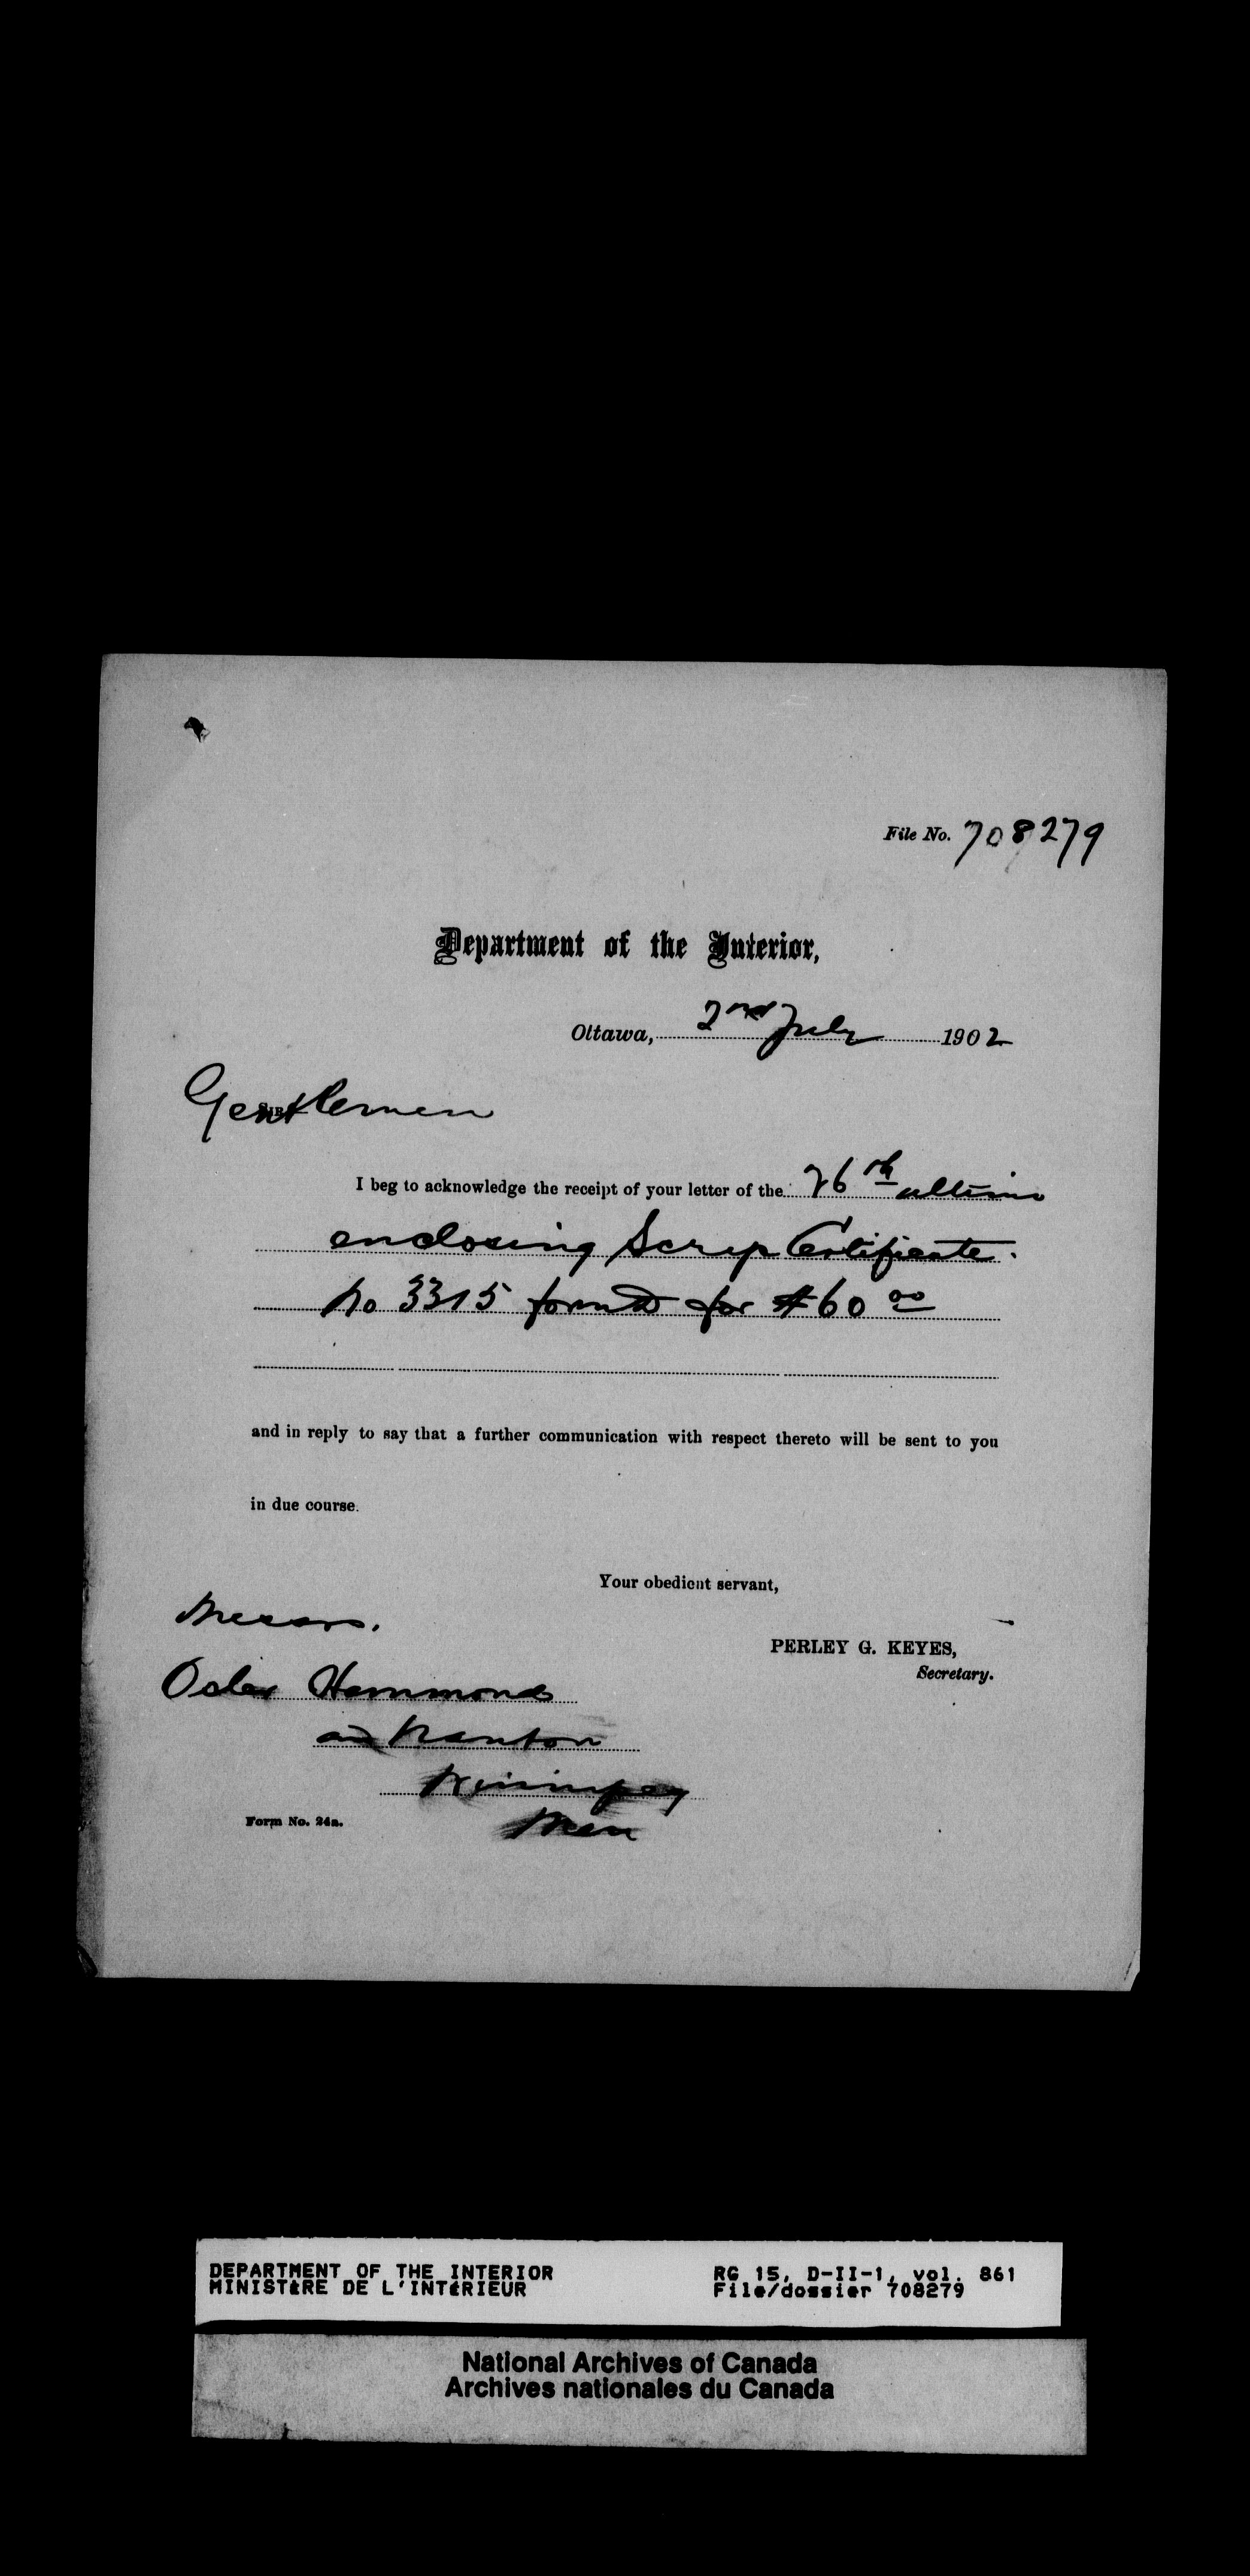 File No. 708279
Department of the Interior,
Ottawa, 2nd July 1902
Gentlemen
I beg to acknowledge the receipt of your letter of the 26th ultimo
enclosing Scrip Certificate.
No 3315 for $60 00
and in reply to say that a further communication with respect thereto will be sent to you
in due course.
Your obedient servant,
PERLEY G. KEYES,
Secretary.
Messrs.
Osler Hammond
and Nanton
Winnipeg
Man
Form No. 24a.
DEPARTMENT OF THE INTERIOR RG 15, D-II-1, vol. 861
MINISTÈRE DE L'INTÉRIEUR File/dossier 708279
National Archives of Canada
Archives nationales du Canada